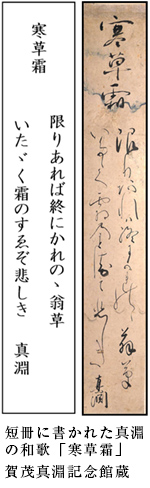 寒草霜
翁草
真淵
寒草霜
限りあれば終にかれのゝ翁草
いたゞく霜のすゑぞ悲しき　真淵
短冊に書かれた真淵
の和歌「寒草霜」
賀茂真淵記念館蔵